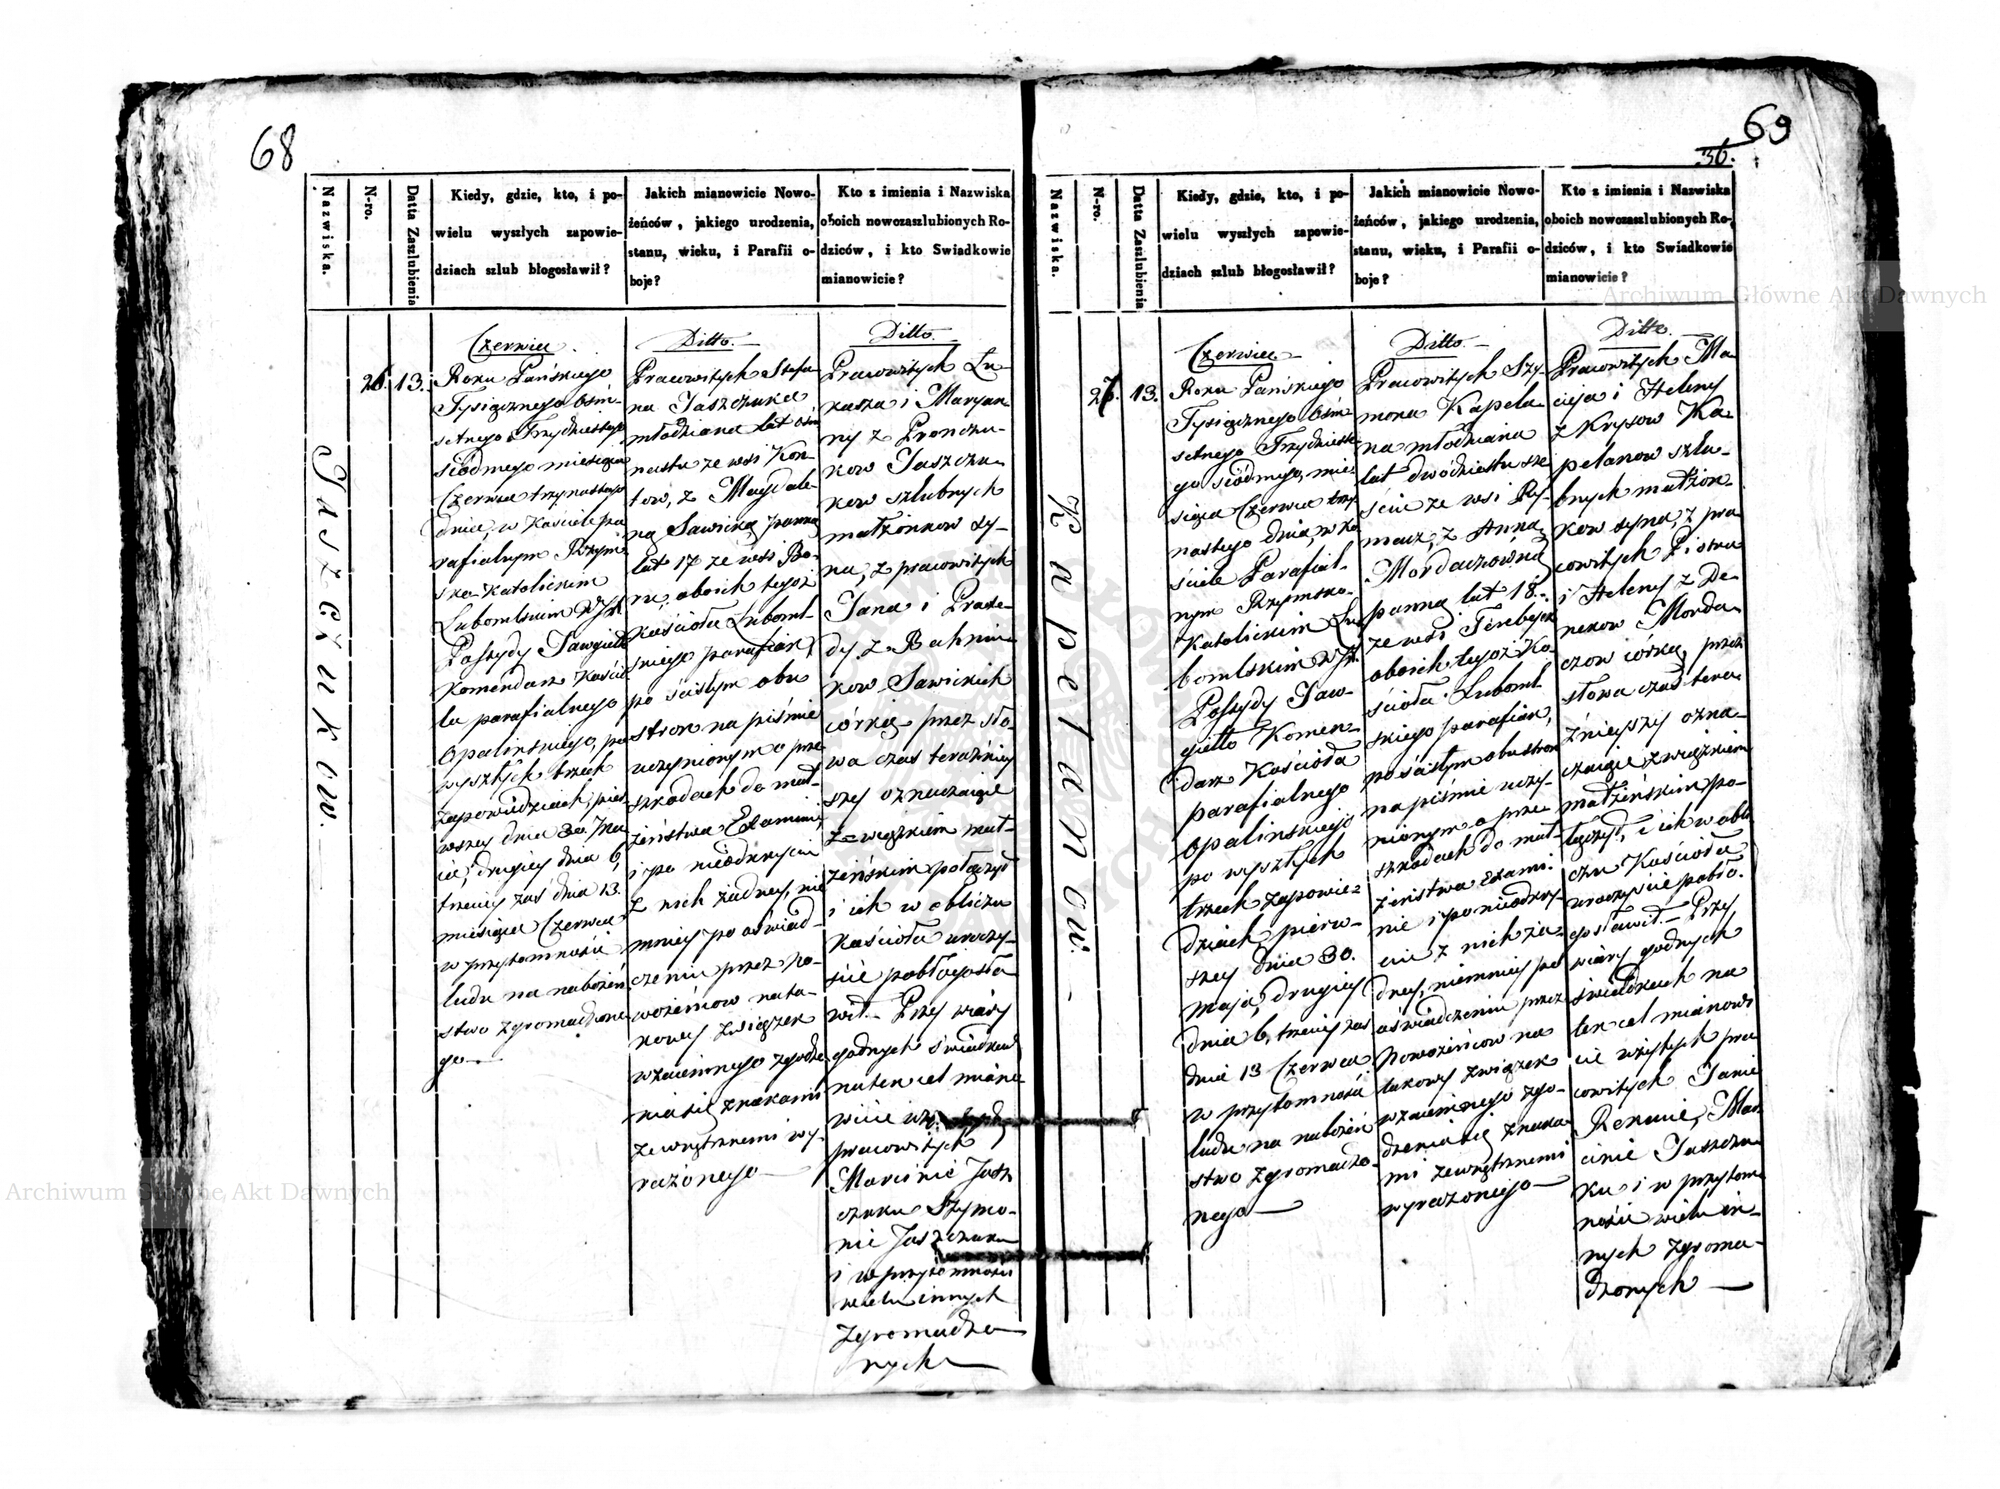 68
Nazwiska.
N-ro.
Datta Zaszlubienia
Kiedy, gdzie, kto, i po-
wielu wyszłych zapowie-
dziach szlub błogosławił?
Jakich mianowicie Nowo-
żeńców, jakiego urodzenia,
stanu, wieku, i Parafii o-
boje?
Kto z imienia i Nazwiska
oboich nowozaszlubionych Ro-
dziców, i kto Swiadkowie
mianowicie?
Jaszczukow.
26.
13.
Czerwiec.
Roku Pańskiego
Tysiącznego Ośm-
setnego Trzydziestego
siódmego miesiąca
Czerwca trzynastego
dnia, w Kościele pa
rafialnym Rzym
sko Katolickim
Lubomlskim WJX
Jawgiełł
Komendarz Kościo
ła parafialnego
Opalińskiego, po
wyszłych trzech
zapowiedziach, pier
wszey dnia 30. Ma
ia, drugiey dnia 6,
trzeciey zaś dnia 13.
miesiąca Czerwca
w przytomności
ludu na nabożeń
stwo zgromadzone
go
Ditto.
Pracowitych Stefa
na Jaszczuka
młodziana lat ośm
nastu ze wsi Kon
tow, z Magdale
ną Sawicką panną
lat 17 ze wsi Bo-
ru, oboich tegoż
Kościoła Luboml-
skiego parafian,
po ścisłym obu
stron na piśmie
uczynionym o prze
szkodach do mał-
żeństwa Examinie,
i po nieodkryciu
z nich żadney, nie
mniey po oświad-
czeniu przez No-
wożeńcow na ta-
kowy związek
wzaiemnego zgodze
nia się znakami
zewnętrznemi wy-
rażonego
Ditto.
Pracowitych Łu-
kasza i Maryan
ny z Pronczu-
kow Jaszczu-
kow szlubnych
małżonkow sy-
na, z pracowitych
Jana i Praxe-
dy z Bahniu
kow Sawickich
córkę, przez sło-
wa czas teraźniey
szy oznaczaiące
związkiem mał-
żeńskim połączył
i ich w obliczu
kościoła uroczy-
ście pobłogosła
wił. Przy wiary
godnych świadkach
na ten cel miano
wicie
pracowitych
Marcinie Jasz
czuku Szymo-
nie Jaszczuku
i w przytomności
wielu innych
zgromadzo
nych
69
36.
Nazwiska.
N-ro.
Datta Zaszlubienia
Kiedy, gdzie, kto, i po-
wielu wyszłych zapowie-
dziach szlub błogosławił?
Jakich mianowicie Nowo-
żeńców, jakiego urodzenia,
stanu, wieku, i Parafii o-
boje?
Kto z imienia i Nazwiska
oboich nowozaszlubionych Ro-
dziców, i kto Swiadkowie
mianowicie?
Kapelanow.
27.
13.
Czerwiec
Roku Pańskiego
Tysiącznego Ośm
setnego Trzydzieste
go siódmego, mie
siąca Czerwca trzy
nastego dnia, w Ko
ściele Parafial-
nym Rzymsko-
Katolickim Lu
bomlskim WJX.
Jaw-
giełło Komen-
darz Kościoła
parafialnego
Opalińskiego
po wyszłych
trzech zapowie-
dziach, pierw-
szey dnia 30.
Maja, drugiey
dnia 6, trzeciey zaś
dnia 13 Czerwca
w przytomności
ludu na nabożeń
stwo zgromadzo-
nego
Ditto.
Pracowitych Szy-
mona Kapela-
na młodziana
lat dwódziestu sze
ściu ze wsi Ry-
macz, z Anną
Mordaczówną
panną lat 18.
ze wsi Terebeyek
oboich tegoż Ko
ścioła Luboml-
skiego parafian,
po ścisłym obu stron
na piśmie uczy-
nionym o prze-
szkodach do mał-
żeństwa Exami-
nie i po nieodkry-
ciu z nich ża-
dney, niemniey po
oświadczeniu przez
Nowożeńcow na
takowy związek
wzaiemnego zgo-
dzenia się znaka
mi zewnętrznemi
wyrażonego
Ditto.
Pracowitych Ma
cieja i Heleny
z Krysow Ka-
pelanow szlu-
bnych małżon-
kow syna, z pra
cowitych Piotra
i Heleny z De-
nekow Morda-
czow córkę, przez
słowa czas tera-
źnieyszy ozna-
czaiące związkiem
małżeńskim po-
łączył, i ich w obli
czu Kościoła
uroczyście pobło-
gosławił. Przy
wiary godnych
świadkach na
ten cel mianowi
cie wziętych pra
cowitych Janie
Remanie, Mar
cinie Jaszczu
ku i w przytom
ności wielu in-
nych zgroma-
dzonych
Archiwum Główne Akt Dawnych
Archiwum Główne Akt Dawnych